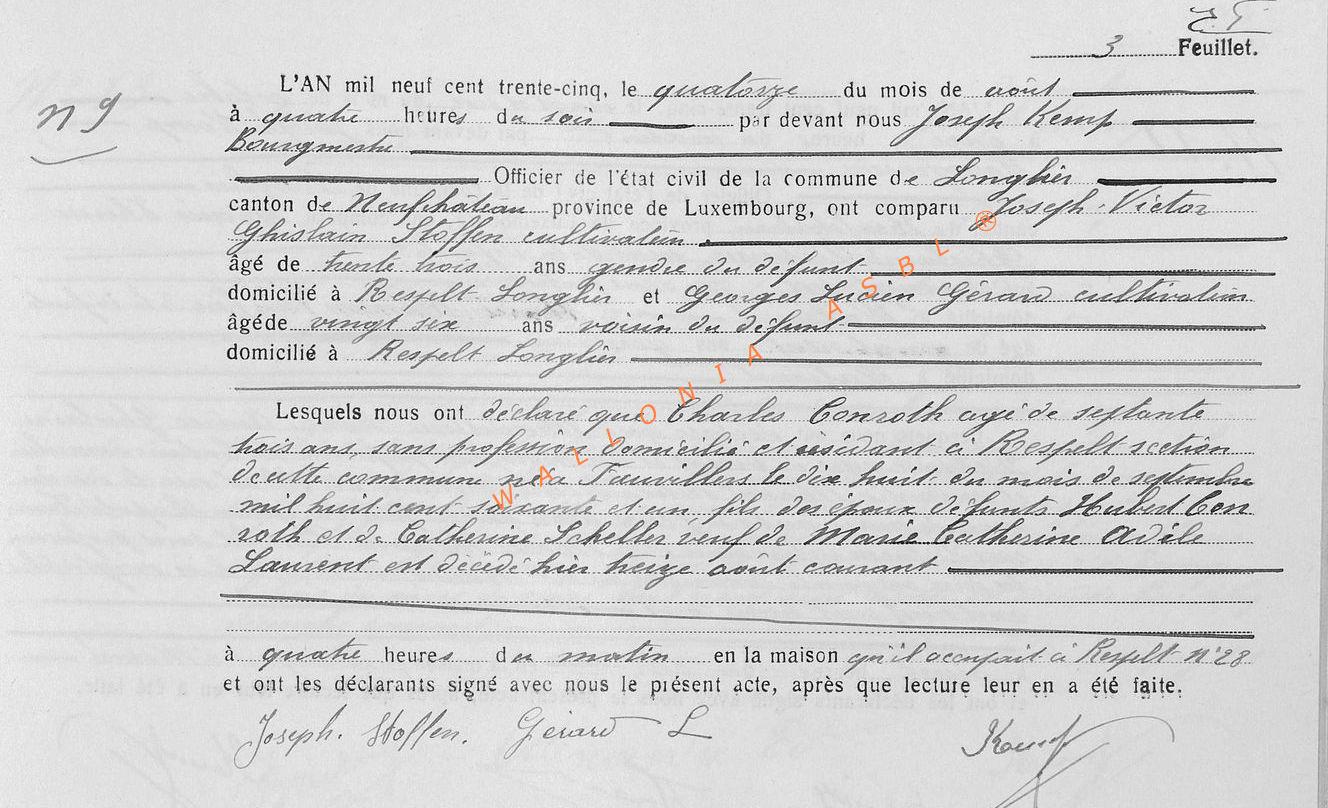 3 Feuillet.
n 9
L'AN mil neuf cent trente-cinq, le quatorze du mois de août
à quatre heures du soir par devant nous Joseph Kemp
Bourgmestre
Officier de l'état civil de la commune de Longlier
canton de Neufchateau province de Luxembourg, ont comparu Joseph Victor
Ghislain Stoffen cultivateur
âgé de trente trois ans gendre du défunt
domicilié à Respelt Longlier et Georges Lucien Gérard cultivateur
âgé de vingt six ans voisin du défunt
domicilié à Respelt Longlier
Lesquels nous ont déclaré que Charles Conroth agé de septante
trois ans, sans profession domicilié et résidant à Respelt section
de cette commune né à Fauvillers le dix huit du mois de septembre
mil huit cent soixante et un, fils des époux défunts Hubert Con
roth et de Catherine Scheller veuf de Marie Catherine Adèle
Laurent est décédé hier treize août courant
à quatre heures du matin en la maison qu'il occupait à Respelt N°28
et ont les déclarants signé avec nous le présent acte, après que lecture leur en a été faite.
Joseph. Stoffen. Gérard L Kemp
WALLONIA ASBL ®